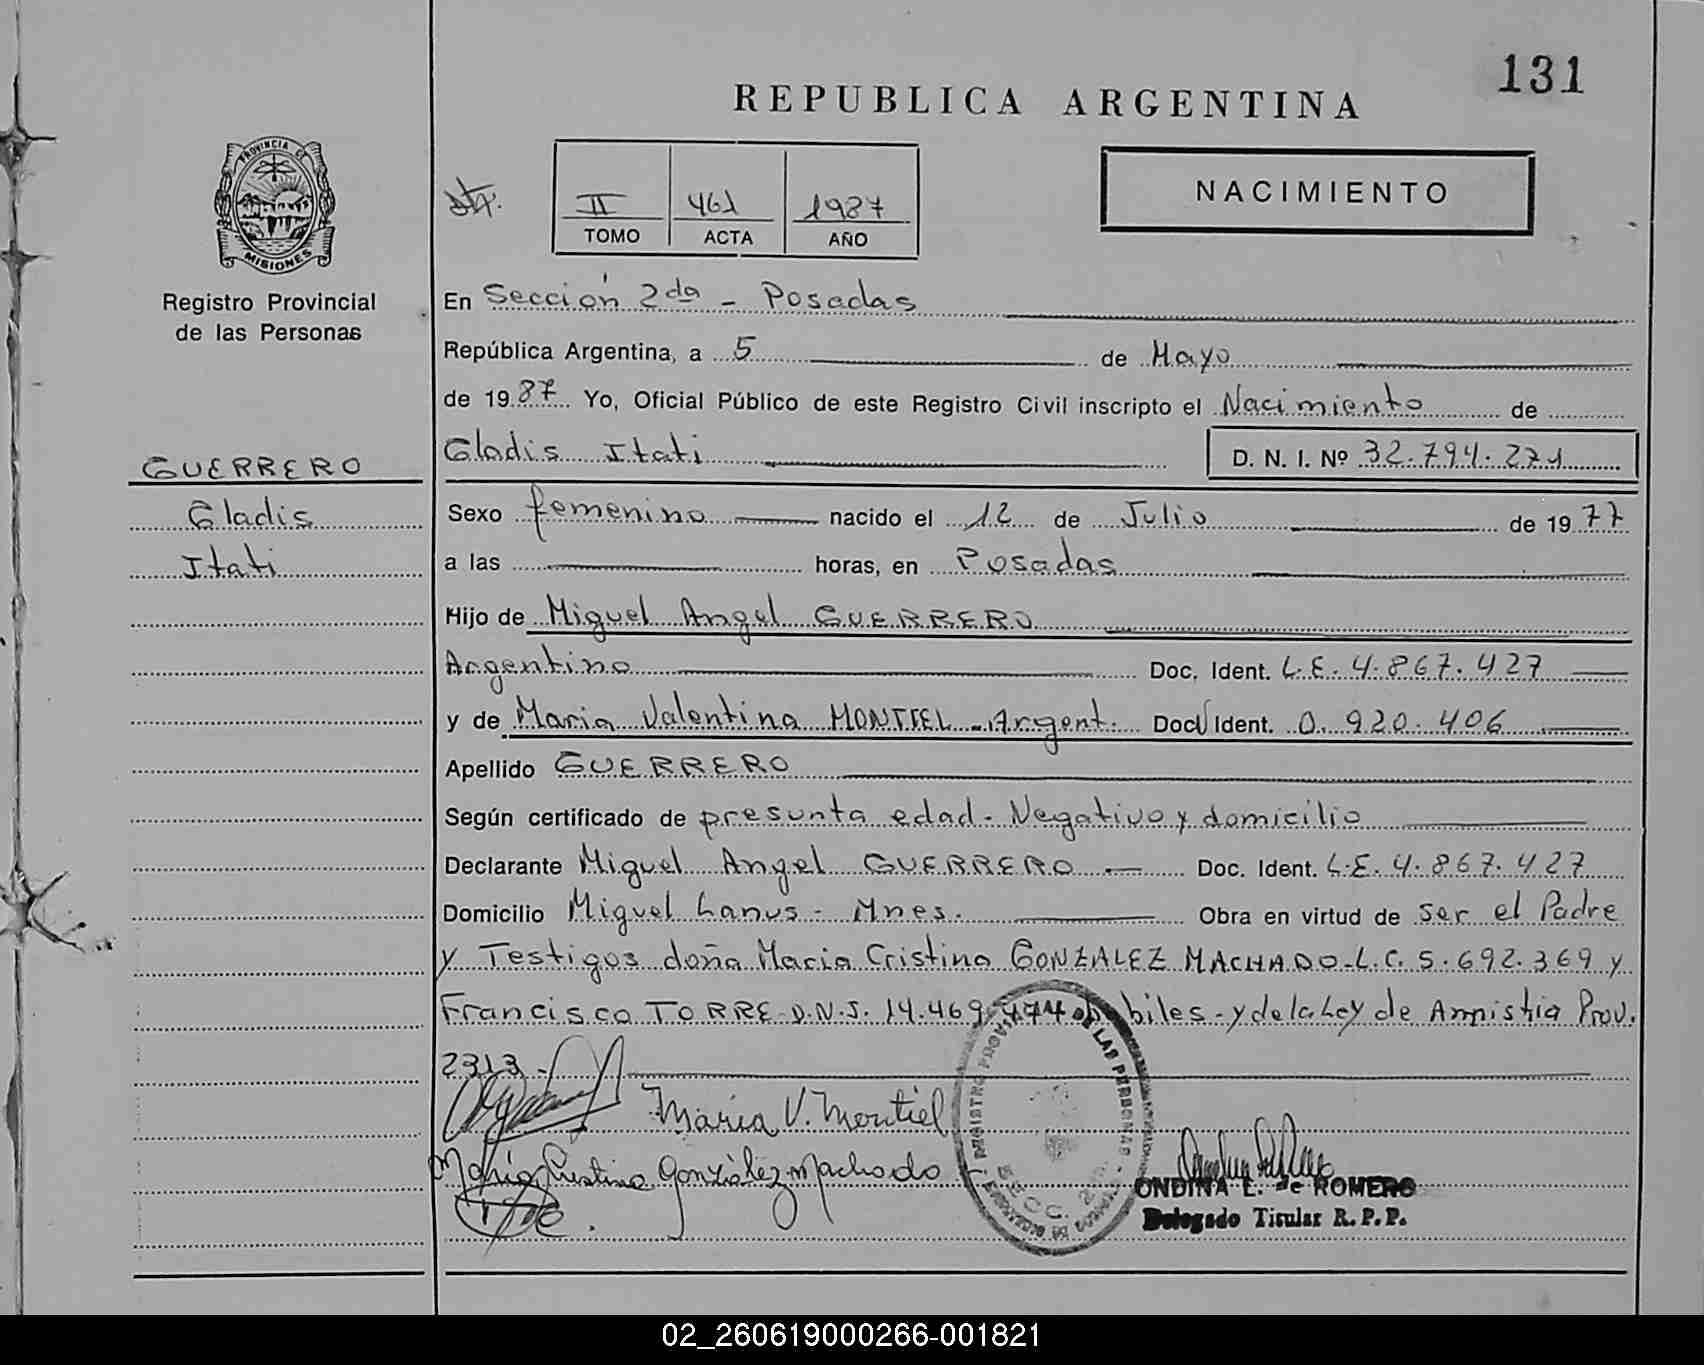 131
REPUBLICA ARGENTINA
PROVINCIA DE
MISIONES
II 461 1987
TOMO ACTA AÑO
NACIMIENTO
Registro Provincial
de las Personas
En Sección 2da - Posadas
República Argentina, a 5 de Mayo
de 1987 Yo, Oficial Público de este Registro Civil inscripto el Nacimiento de
Gladis Itati D. N. I. Nº 32.794.271
GUERRERO
Gladis
Itati
Sexo femenino nacido el 12 de Julio de 1977
a las horas, en Posadas
Hijo de Miguel Angel GUERRERO
Argentino Doc. Ident. L.E. 4.867.427
y de Maria Valentina MONTIEL - Argent. Doc. Ident. 0.920.406
Apellido GUERRERO
Según certificado de presunta edad - Negativo y domicilio
Declarante Miguel Angel GUERRERO - Doc. Ident. L.E. 4.867.427
Domicilio Miguel Lanus - Mnes. Obra en virtud de ser el Padre
y Testigos doña Maria Cristina GONZALEZ MACHADO - L.C. 5.692.369 y
Francisco TORRE - D.N.I. 14.469.474 habiles - y de la Ley de Amistia Prov.
2313 -
Maria V. Montiel
Maria Cristina González Machado
REGISTRO PROVINCIAL DE LAS PERSONAS
SECC. 2da
ONDINA L. de ROMERO
Delegado Titular R.P.P.
02_260619000266-001821